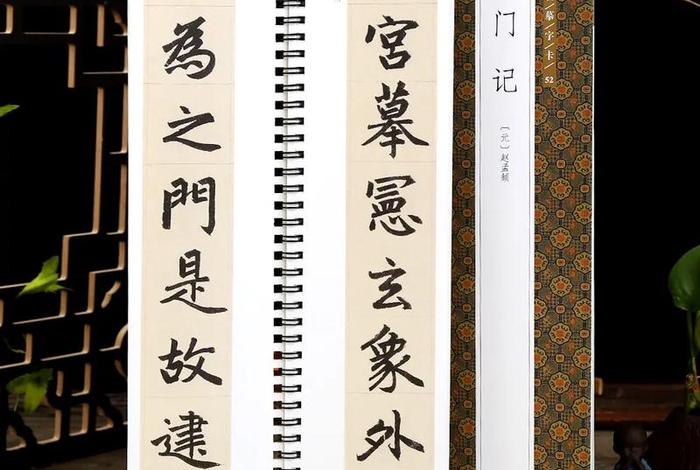 為之門是故建
宮摹憲玄象外
门记
〔元〕赵孟頫
/摹/字/卡/52